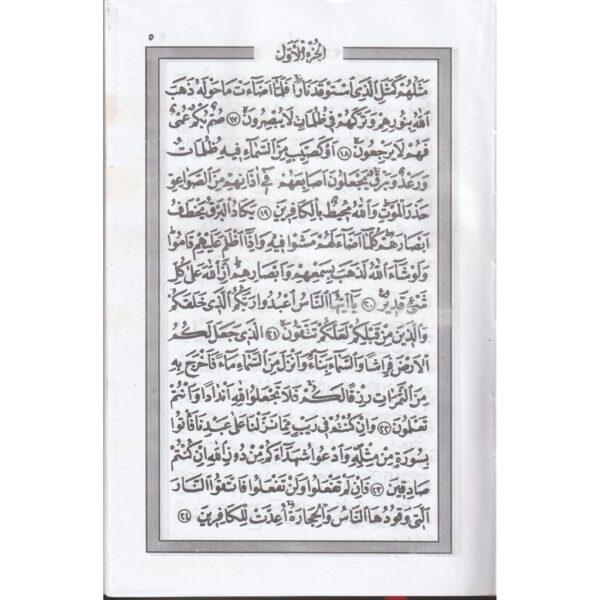 ٥
الجزء الأول
مَثَلُهُمْ كَمَثَلِ الَّذِي اسْتَوْقَدَ نَارًا فَلَمَّا أَضَاءَتْ مَا حَوْلَهُ ذَهَبَ
اللهُ بِنُورِهِمْ وَتَرَكَهُمْ فِي ظُلُمَاتٍ لَا يُبْصِرُونَ ١٧ صُمٌّ بُكْمٌ عُمْيٌ
فَهُمْ لَا يَرْجِعُونَ ١٨ أَوْ كَصَيِّبٍ مِنَ السَّمَاءِ فِيهِ ظُلُمَاتٌ
وَرَعْدٌ وَبَرْقٌ يَجْعَلُونَ أَصَابِعَهُمْ فِي آذَانِهِمْ مِنَ الصَّوَاعِقِ
حَذَرَ الْمَوْتِ وَاللهُ مُحِيطٌ بِالْكَافِرِينَ ١٩ يَكَادُ الْبَرْقُ يَخْطَفُ
أَبْصَارَهُمْ كُلَّمَا أَضَاءَ لَهُمْ مَشَوْا فِيهِ وَإِذَا أَظْلَمَ عَلَيْهِمْ قَامُوا
وَلَوْ شَاءَ اللهُ لَذَهَبَ بِسَمْعِهِمْ وَأَبْصَارِهِمْ إِنَّ اللهَ عَلَى كُلِّ
شَيْءٍ قَدِيرٌ ٢٠ يَا أَيُّهَا النَّاسُ اعْبُدُوا رَبَّكُمُ الَّذِي خَلَقَكُمْ
وَالَّذِينَ مِنْ قَبْلِكُمْ لَعَلَّكُمْ تَتَّقُونَ ٢١ الَّذِي جَعَلَ لَكُمُ
الْأَرْضَ فِرَاشًا وَالسَّمَاءَ بِنَاءً وَأَنْزَلَ مِنَ السَّمَاءِ مَاءً فَأَخْرَجَ بِهِ
مِنَ الثَّمَرَاتِ رِزْقًا لَكُمْ فَلَا تَجْعَلُوا لِلهِ أَنْدَادًا وَأَنْتُمْ
تَعْلَمُونَ ٢٢ وَإِنْ كُنْتُمْ فِي رَيْبٍ مِمَّا نَزَّلْنَا عَلَى عَبْدِنَا فَأْتُوا
بِسُورَةٍ مِنْ مِثْلِهِ وَادْعُوا شُهَدَاءَكُمْ مِنْ دُونِ اللهِ إِنْ كُنْتُمْ
صَادِقِينَ ٢٣ فَإِنْ لَمْ تَفْعَلُوا وَلَنْ تَفْعَلُوا فَاتَّقُوا النَّارَ
الَّتِي وَقُودُهَا النَّاسُ وَالْحِجَارَةُ أُعِدَّتْ لِلْكَافِرِينَ ٢٤